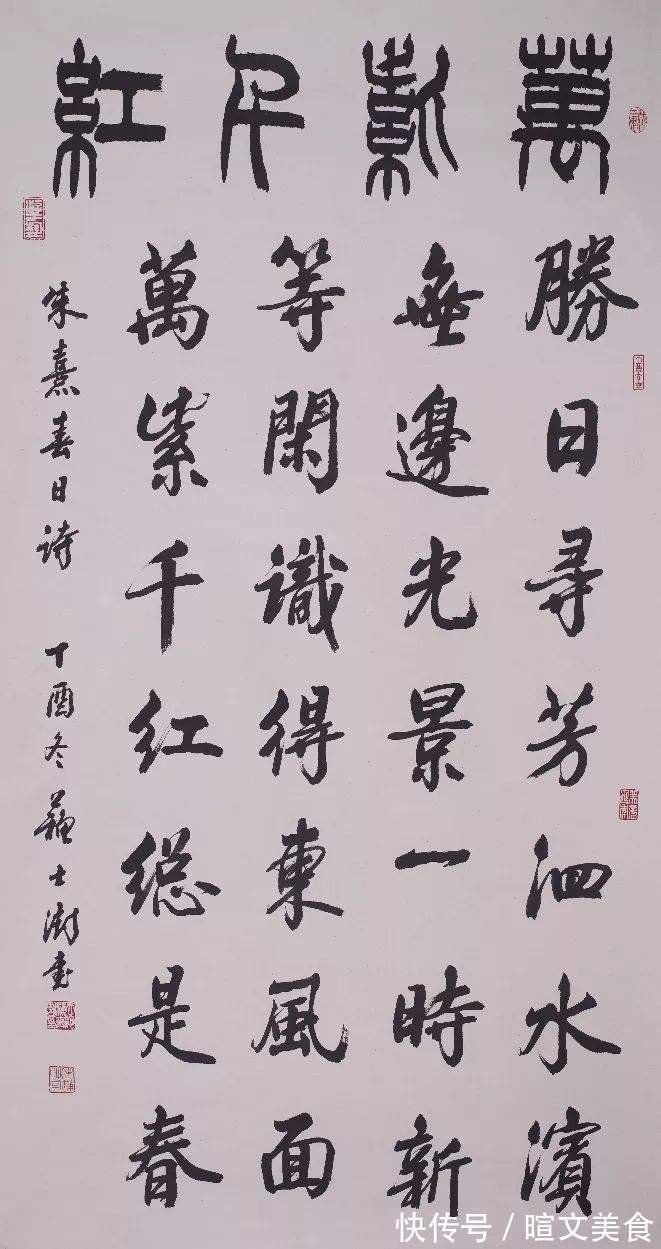 萬紫千紅
勝日尋芳泗水濱
無邊光景一時新
等閑識得東風面
萬紫千红總是春
朱熹春日诗 丁酉冬蘇士澍書
快传号/暄文美食